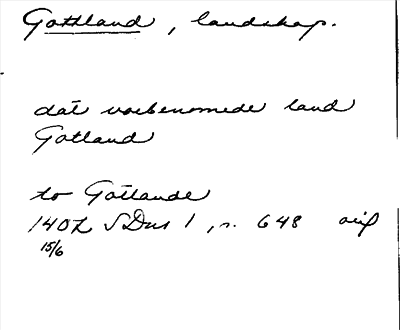 Gottland, landskap.
dat vorbenomede land
Gotland
to Gotlande
1407 SDns 1, n. 648 orig
15/6